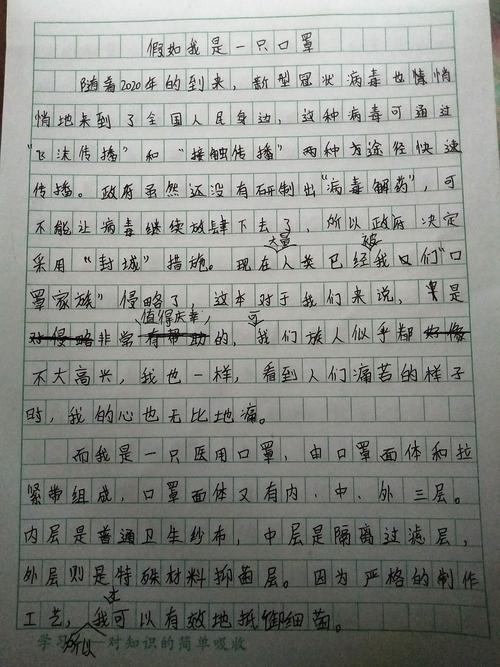 假如我是一只口罩
随着2020年的到来，新型冠状病毒也悄悄
悄地来到了全国人民身边，这种病毒可通过
“飞沫传播”和“接触传播”两种方途径快速
传播。政府虽然还没有研制出“病毒解药”，可
不能让病毒继续放肆下去了，所以政府决定
采用“封城”措施。现在大量人类已经被我们“口
罩家族”侵略了，这本对于我们来说，是
非常值得庆幸的，可我们族人似乎都好像
不大高兴，我也一样，看到人们痛苦的样子
时，我的心也无比地痛。
而我是一只医用口罩，由口罩面体和拉
紧带组成，口罩面体又有内、中、外三层。
内层是普通卫生纱布，中层是隔离过滤层，
外层则是特殊材料抑菌层。因为严格的制作
工艺，所以我可以有效地抵御细菌。
学习 对知识的简单吸收